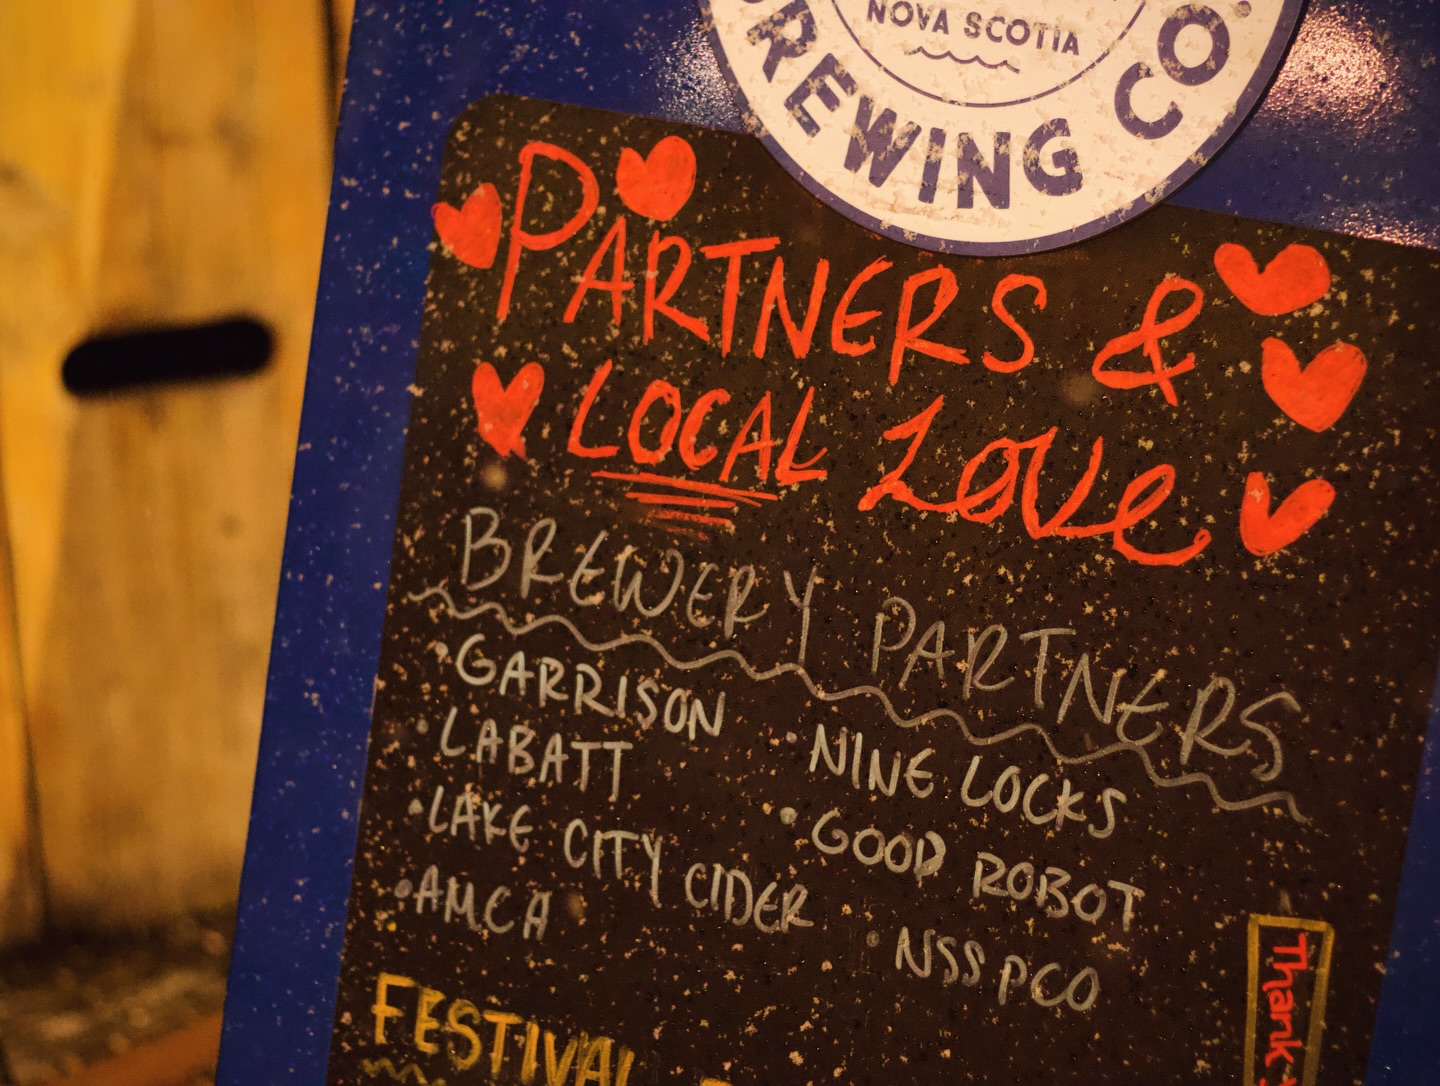 NOVA SCOTIA
BREWING CO.
PARTNERS &
LOCAL LOVE
BREWERY PARTNERS
• GARRISON
• LABATT
• LAKE CITY CIDER
• AMCA
• NINE LOCKS
• GOOD ROBOT
• NSSPCO
FESTIVAL
Thank